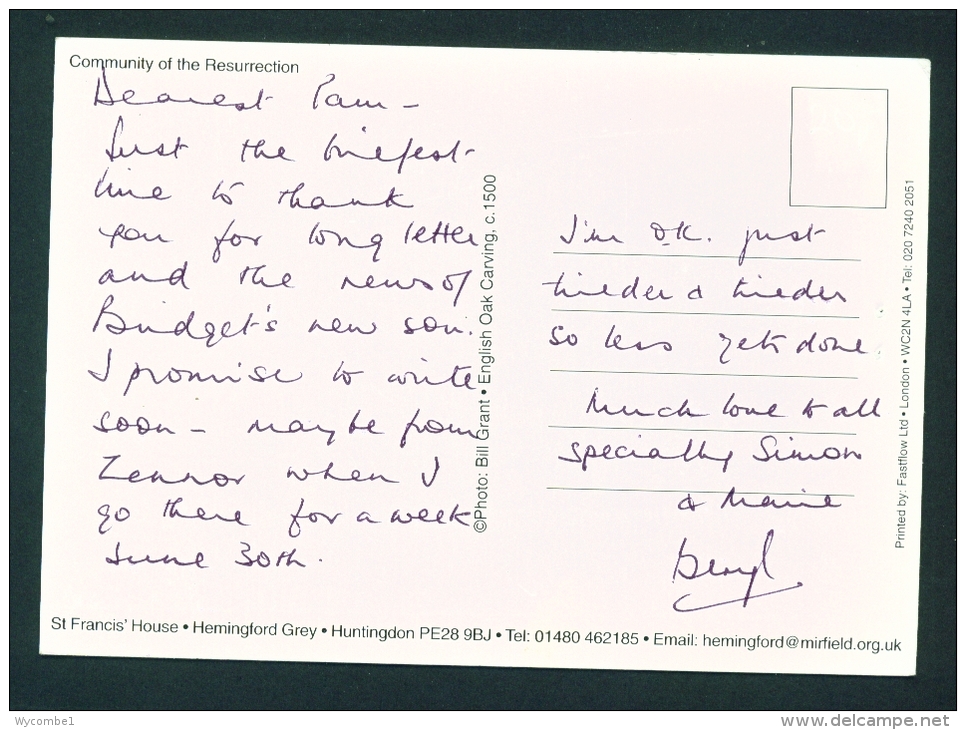 Community of the Resurrection
Dearest Pam -
Just the briefest
line to thank
you for long letter
and the news of
Bridget's new son.
I promise to write
soon - maybe from
Zennor when I
go there for a week
June 30th.
©Photo: Bill Grant • English Oak Carving, c.1500
I'm O.K. just
tireder & tireder
so less gets done.
Much love to all
specially Simon
& Marie
Beryl
Printed by: Fastflow Ltd • London • WC2N 4LA • Tel: 020 7240 2051
St Francis' House • Hemingford Grey • Huntingdon PE28 9BJ • Tel: 01480 462185 • Email: hemingford@mirfield.org.uk
Wycombe1
www.delcampe.net